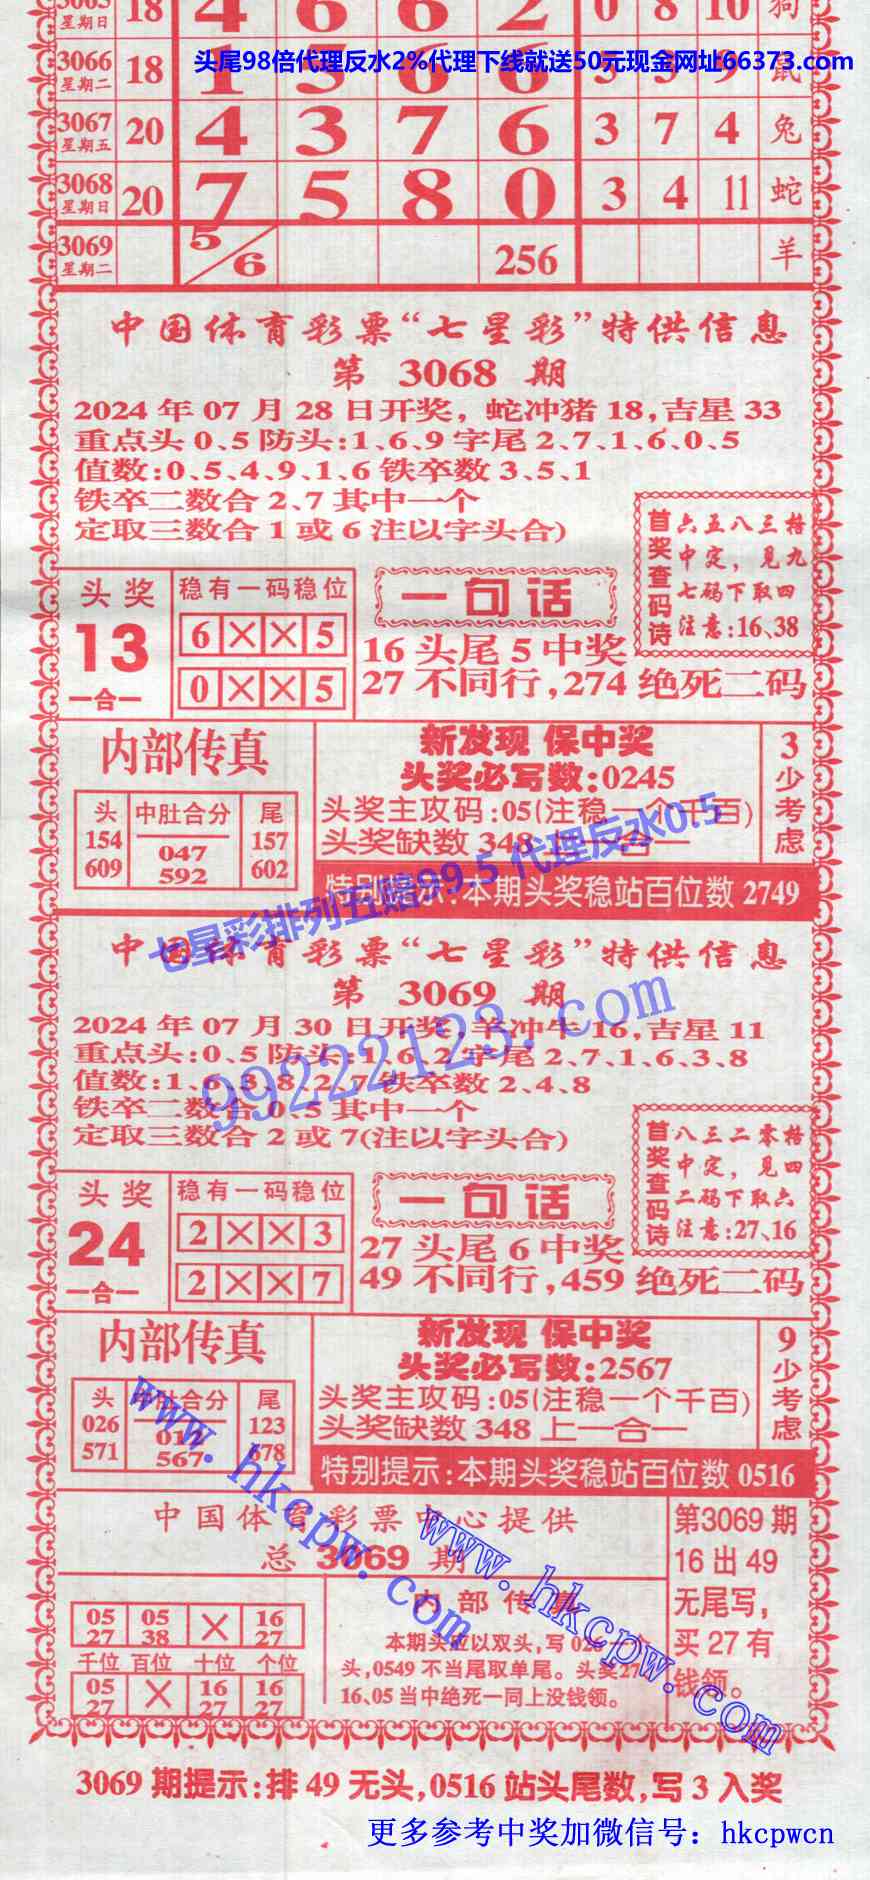 3065 星期日 18 4 6 6 2 0 8 10 狗
头尾98倍代理反水2%代理下线就送50元现金网址66373.com
3066 星期二 18 1 5 6 6 5 3 9 鼠
3067 星期五 20 4 3 7 6 3 7 4 兔
3068 星期日 20 7 5 8 0 3 4 11 蛇
3069 星期二 5/6 256 羊
中国体育彩票“七星彩”特供信息
第 3068 期
2024年07月28日开奖,蛇冲猪18,吉星33
重点头0.5防头:1、6、9字尾2、7、1、6、0、5
值数:0、5、4、9、1、6铁卒数3、5、1
铁卒二数合2、7其中一个
定取三数合1或6注以字头合)
首奖查码诗
六五八三格
中定,见九
七码下取四
注意:16、38
头奖
13
一合一
稳有一码稳位
6 × × 5
0 × × 5
一句话
16头尾5中奖
27不同行,274绝死二码
内部传真
头 中肚合分 尾
154 047 157
609 592 602
新发现 保中奖
头奖必写数:0245
头奖主攻码:05(注稳一个千百)
头奖缺数348上一合一
特别提示:本期头奖稳站百位数2749
3少考虑
七星彩排列五赔99.5 代理反水0.5
中国体育彩票“七星彩”特供信息
第 3069 期
99222123.com
2024年07月30日开奖,羊冲牛16,吉星11
重点头:0、5防头:1、6、2字尾2、7、1、6、3、8
值数:1、6、3、8、2、7铁卒数2、4、8
铁卒二数合0、5其中一个
定取三数合2或7(注以字头合)
首奖查码诗
八三二零格
中定,见四
二码下取六
注意:27、16
头奖
24
一合一
稳有一码稳位
2 × × 3
2 × × 7
一句话
27头尾6中奖
49不同行,459绝死二码
内部传真
头 中肚合分 尾
026 012 123
571 567 678
新发现 保中奖
头奖必写数:2567
头奖主攻码:05(注稳一个千百)
头奖缺数348上一合一
特别提示:本期头奖稳站百位数0516
9少考虑
www.hkcpw.com
www.hkcpw.com
中国体育彩票中心提供
总 3069 期
05 27 05 38 × 16 27
千位 百位 十位 个位
05 27 × 16 27 16 27
内部传真
本期头应以双头,写026一
头,0549不当尾取单尾。头奖27
16、05当中绝死一同上没钱领。
第3069期
16出49
无尾写,
买27有
钱领。
3069期提示:排49无头,0516站头尾数,写3入奖
更多参考中奖加微信号: hkcpwcn